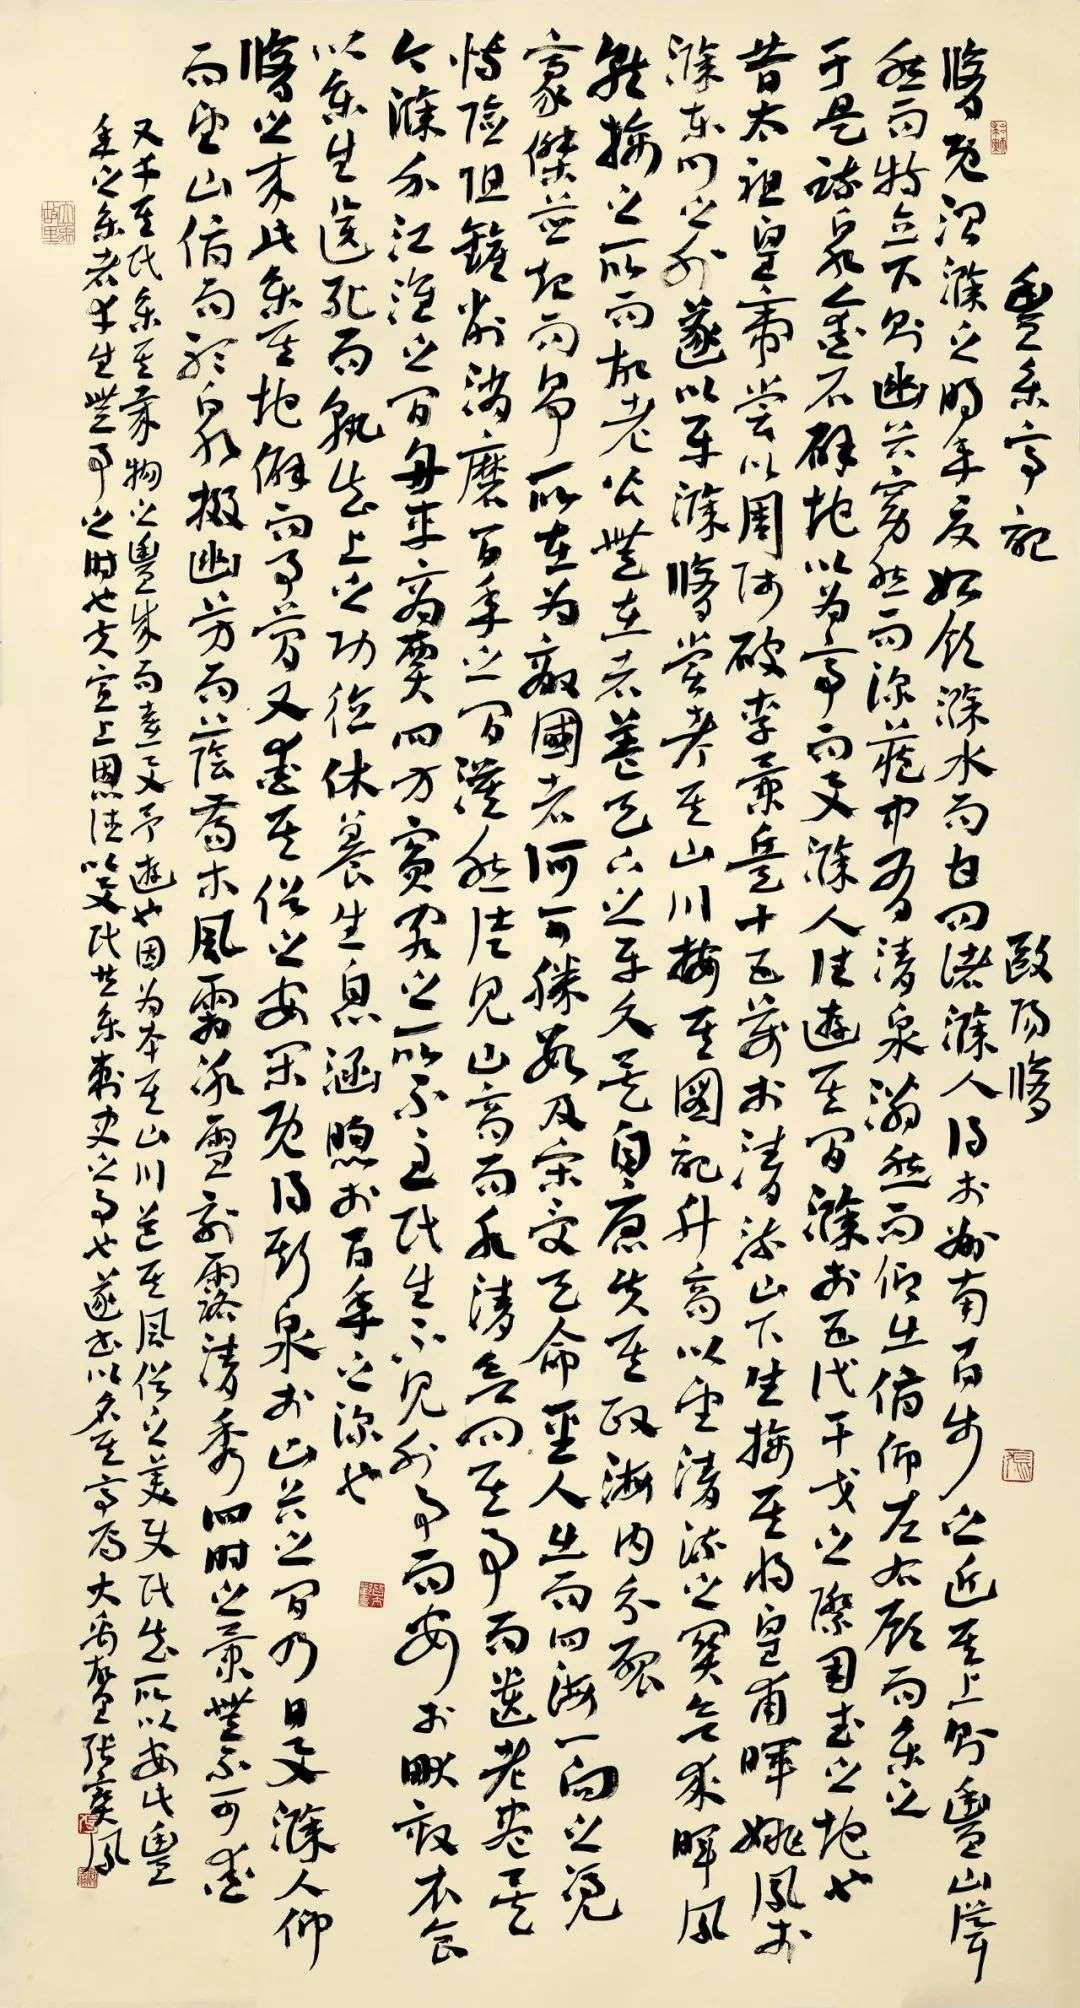 豐樂亭記 歐陽脩
脩既治滁之明年夏始飲滁水而甘問諸滁人得於州南百步之近其上則豐山聳
然而特立下則幽谷窈然而深藏中有清泉滃然而仰出俯仰左右顧而樂之
于是疏泉鑿石辟地以為亭而與滁人往遊其間滁於五代干戈之際用武之地也
昔太祖皇帝嘗以周師破李景兵十五萬於清流山下生擒其將皇甫暉姚鳳於
滁東門之外遂以平滁脩嘗考其山川按其圖記升高以望清流之關欲求暉鳳
就擒之所而故老皆無在者蓋天下之平久矣自唐失其政海內分裂
豪傑並起而爭所在為敵國者何可勝數及宋受天命聖人出而四海一向之憑
恃險阻鏟削消磨百年之間漠然徒見山高而水清欲問其事而遺老盡矣
今滁介江淮之間舟車商賈四方賓客之所不至民生不見外事而安於畎畝衣食
以樂生送死而孰知上之功德休養生息涵煦於百年之深也
脩之來此樂其地僻而事簡又愛其俗之安閒既得斯泉於山谷之間乃日與滁人仰
而望山俯而聽泉掇幽芳而蔭喬木風霜冰雪刻露清秀四時之景無不可愛
又幸其民樂其歲物之豐成而喜與予遊也因為本其山川道其風俗之美使民知所以安此豐
年之樂者幸生無事之時也夫宣上恩德以與民共樂刺史之事也遂書以名其亭焉 大禹 張奕鳳